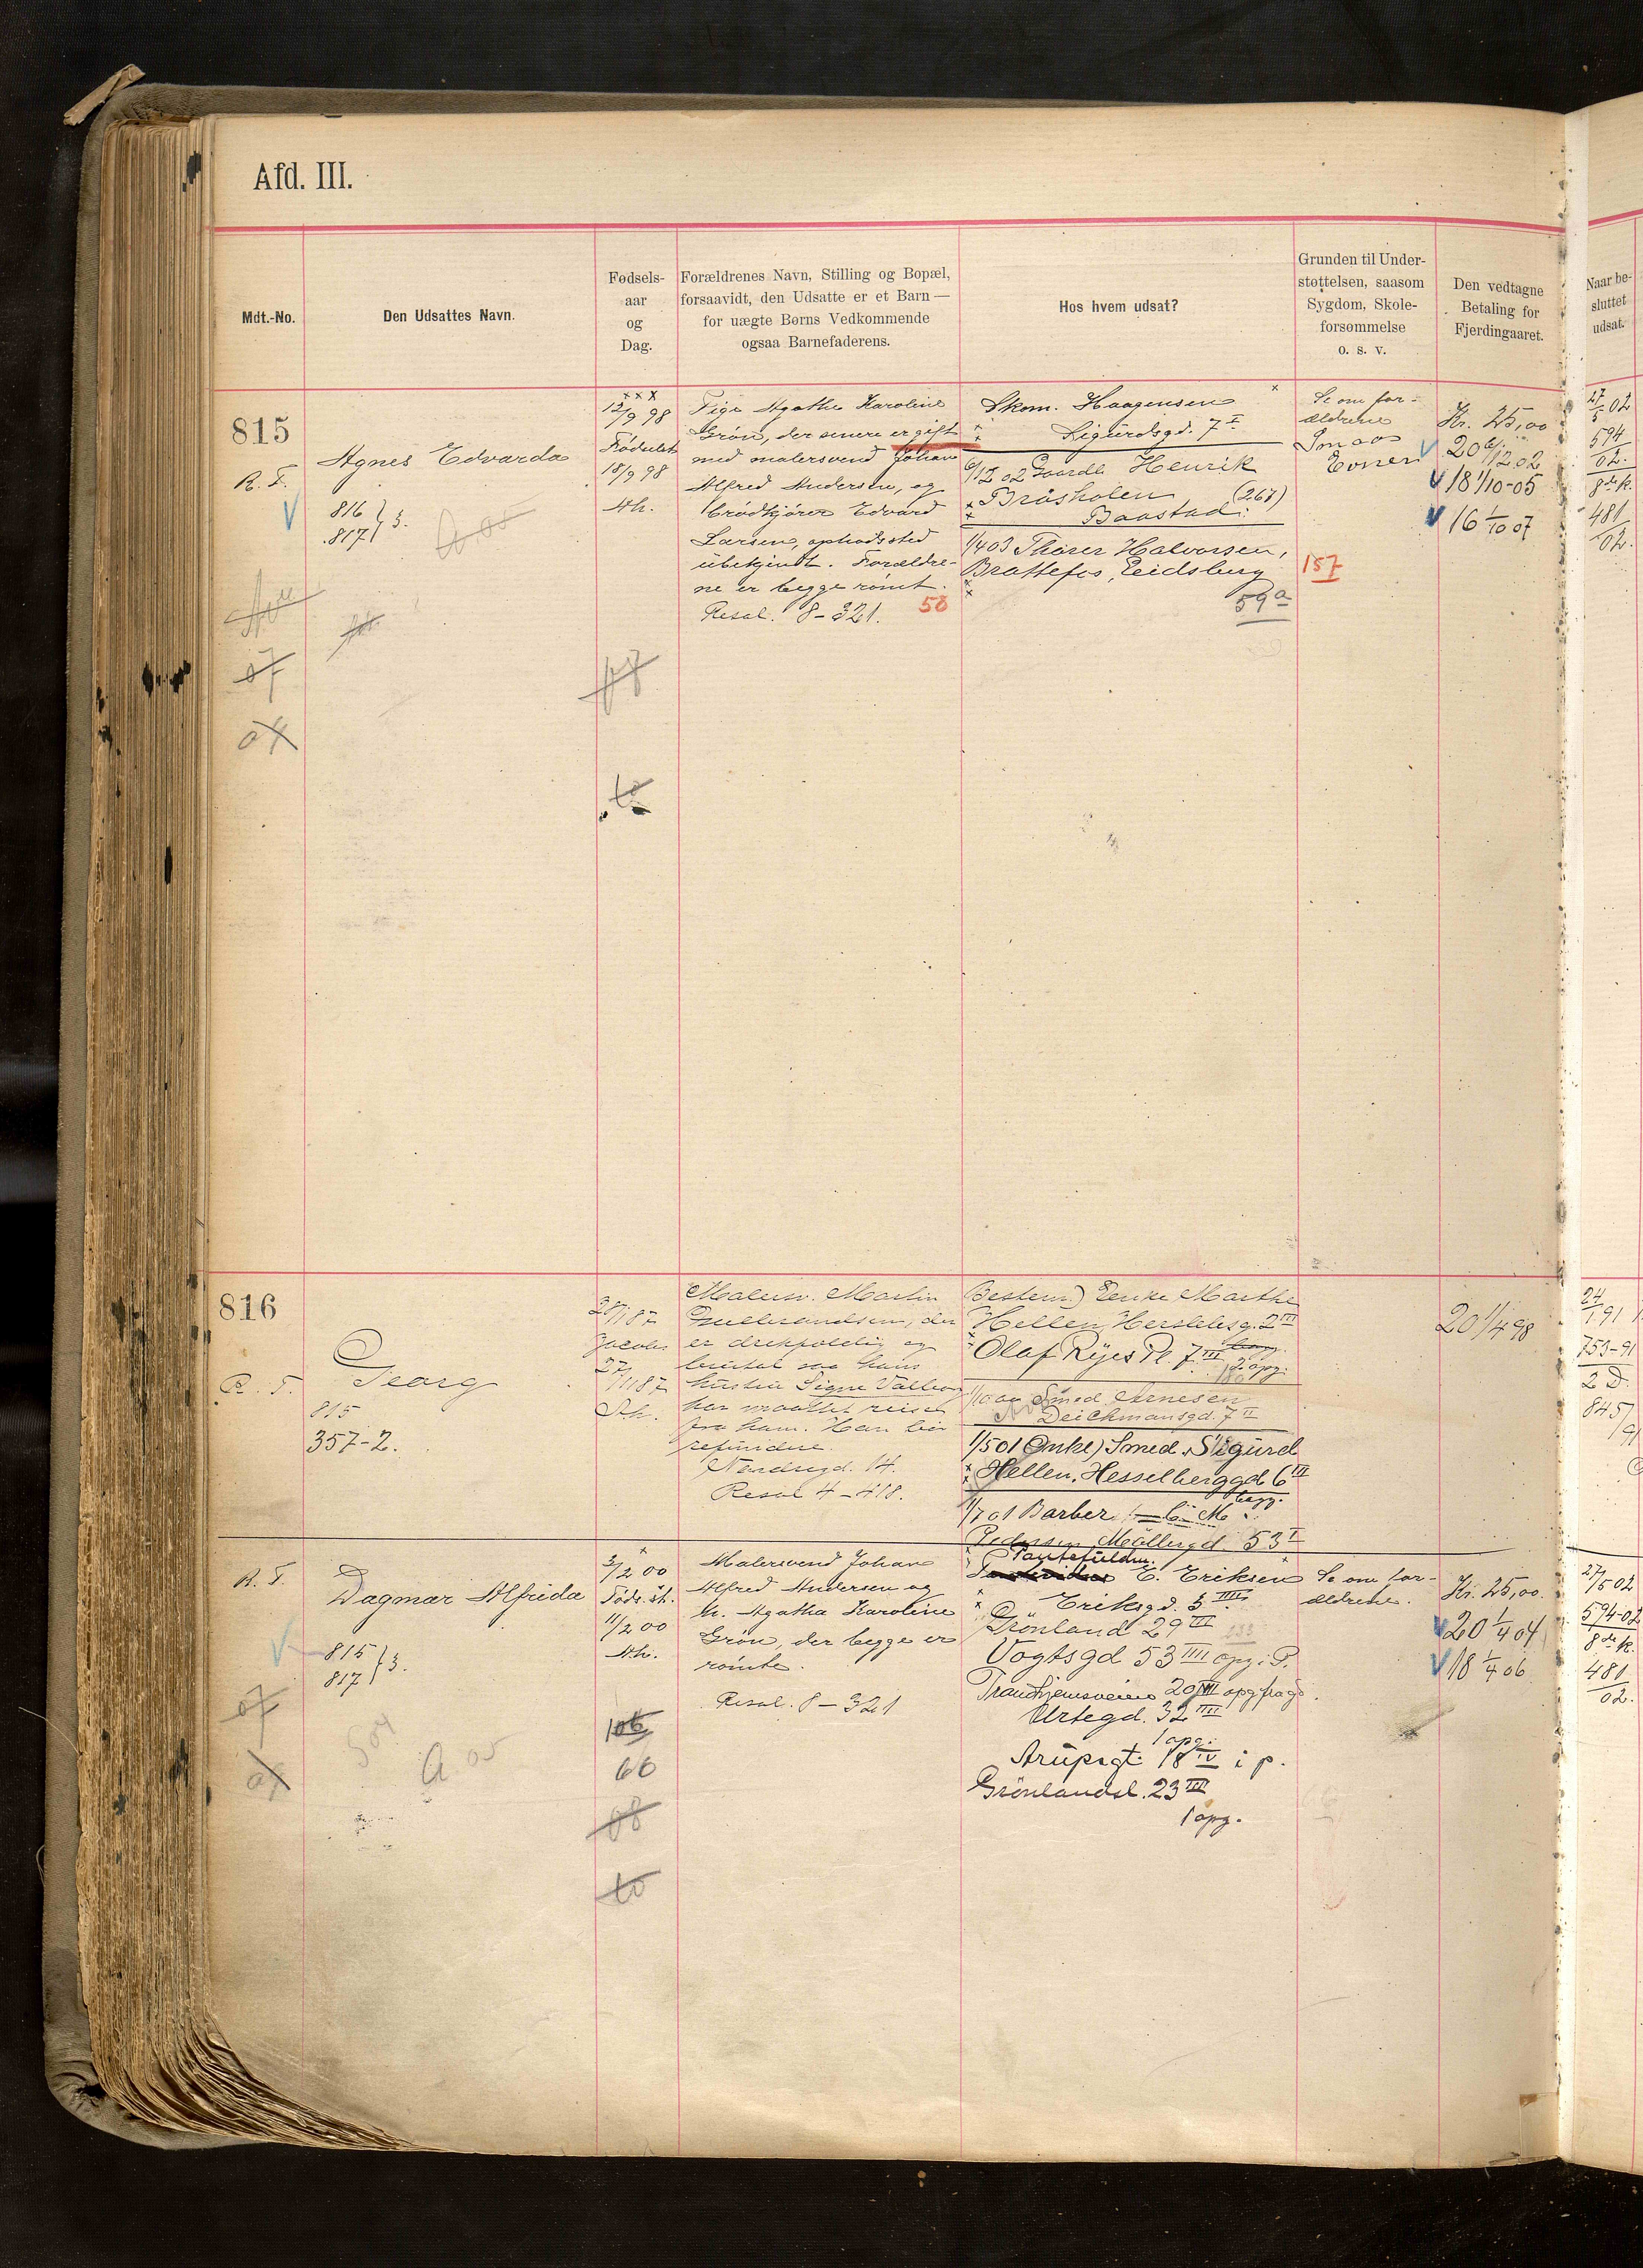 Afd. III.
Mdt.-No.
Den Udsattes Navn.
Fødsels-
aar
og
Dag.
Forældrenes Navn, Stilling og Bopæl,
forsaavidt, den Udsatte er et Barn —
for uægte Børns Vedkommende
ogsaa Barnefaderens.
Hos hvem udsat?
Grunden til Under-
støttelsen, saasom
Sygdom, Skole-
forsømmelse
o. s. v.
Den vedtagne
Betaling for
Fjerdingaaret.
Naar be-
sluttet
udsat.
815
R. F.
Agnes Edvarda
816 } 3.
817
12/9 98
Fødselst.
18/9 98
Ah.
Pige Agathe Karoline
Grön, der senere er gift
med malersvend Johan
Alfred Andersen, og
brödkjörer Edvard
Larsen, opholdssted
übekjendt. Forældre-
ne er begge römt.
Resol. 8-321.
50
Skom. Haagensen
Sigurdsgd. 7 I
6/12 02 Gaardb. Henrik
Bräsholen (267)
Baastad.
1/4 03 Thorer Halvorsen,
Brattefos, Eidsberg
59a
Se om for-
ældrene
157
Kr. 25,00
20 6/12 02
18 1/10-05
16 1/10 07
27/5 02
594
02.
8de k.
481
02.
07
816
Georg
815
357-2.
Jacobs
Malersv. Martin
er drikfældig og
brutal saa hans
hustru Signe Valborg
har maattet reise
fra ham. Han bör
refundere.
Nordregd. 14.
Resol 4-418.
Bestem.) Enke Marthe
Hellen, Herslebsg. 2 III
Olaf Ryes Pl. 7 III
2 opg.
Smed Arnesen
Deichmansgd. 7 II
1/5 01 Enke) Smed Sigurd
Hellen, Hesselberggd 6 III
1/7 01 Barber
Pedersen Möllergd. 53 I
20 1/4 98
24/1 91
753-91
2 D.
845
R. F.
Dagmar Alfrida
815 } 3.
817
3/2 00
Föds. st.
11/2 00
Ah.
Malersvend Johan
Alfred Andersen og
h. Agatha Karoline
Grön, der begge er
römte.
Resol. 8-321
Pantefuldm.
E. Eriksen
Eriksgd. 5 IIII
Grönland 29 III
Vogtsgd 53 IIII opg. i P.
Trondhjemsveien 20 opg fra gd.
Urtegd. 32 IIII
1 opg.
Arupsgt. 18 IV i p.
Grönlandsl. 23 III
1 opg.
Se om for-
ældrene.
Kr. 25,00.
20 1/4 04
18 1/4 06
27/5 02
594-02
8de k.
481
02.
07
A 05
66
08